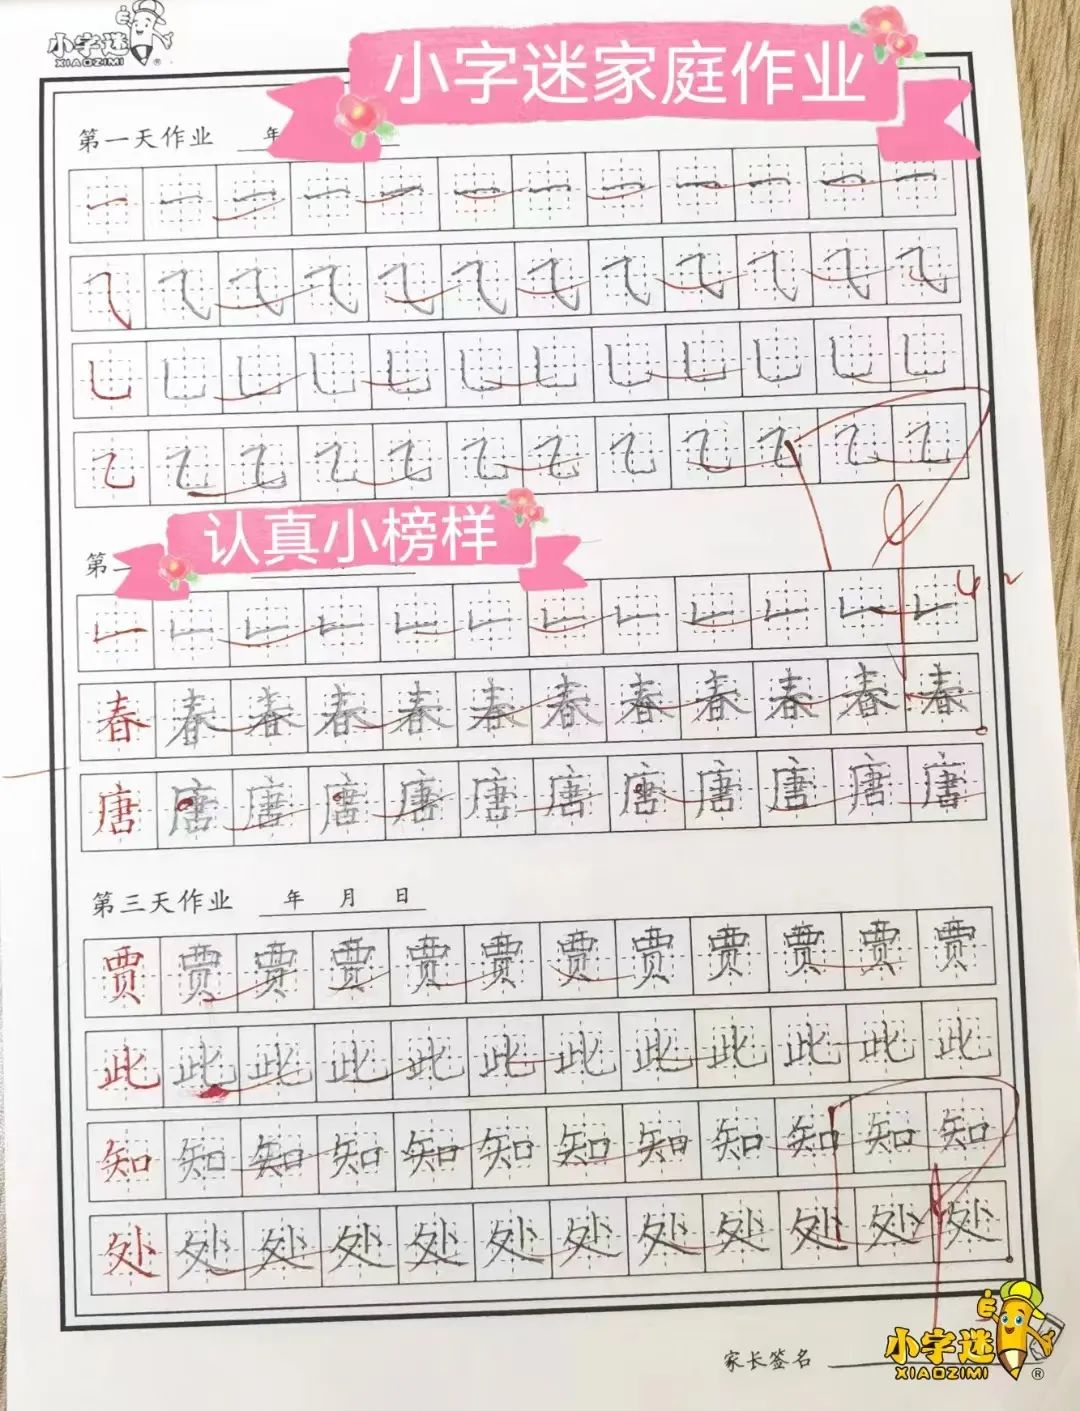 小字迷
XIAOZIMI®
小字迷家庭作业
第一天作业 年
一 一 一 一 一 一 一 一 一 一 一
乚 乚 乚 乚 乚 乚 乚 乚 乚 乚 乚 乚
乙 乙 乙 乙 乙 乙 乙 乙 乙 乙 乙 乙
认真小榜样
第二
春 春 春 春 春 春 春 春 春 春 春 春
唐 唐 唐 唐 唐 唐 唐 唐 唐 唐 唐 唐
第三天作业 年 月 日
贾 贾 贾 贾 贾 贾 贾 贾 贾 贾 贾 贾
此 此 此 此 此 此 此 此 此 此 此 此
知 知 知 知 知 知 知 知 知 知 知 知
处 处 处 处 处 处 处 处 处 处 处 处
家长签名
小字迷
XIAOZIMI®